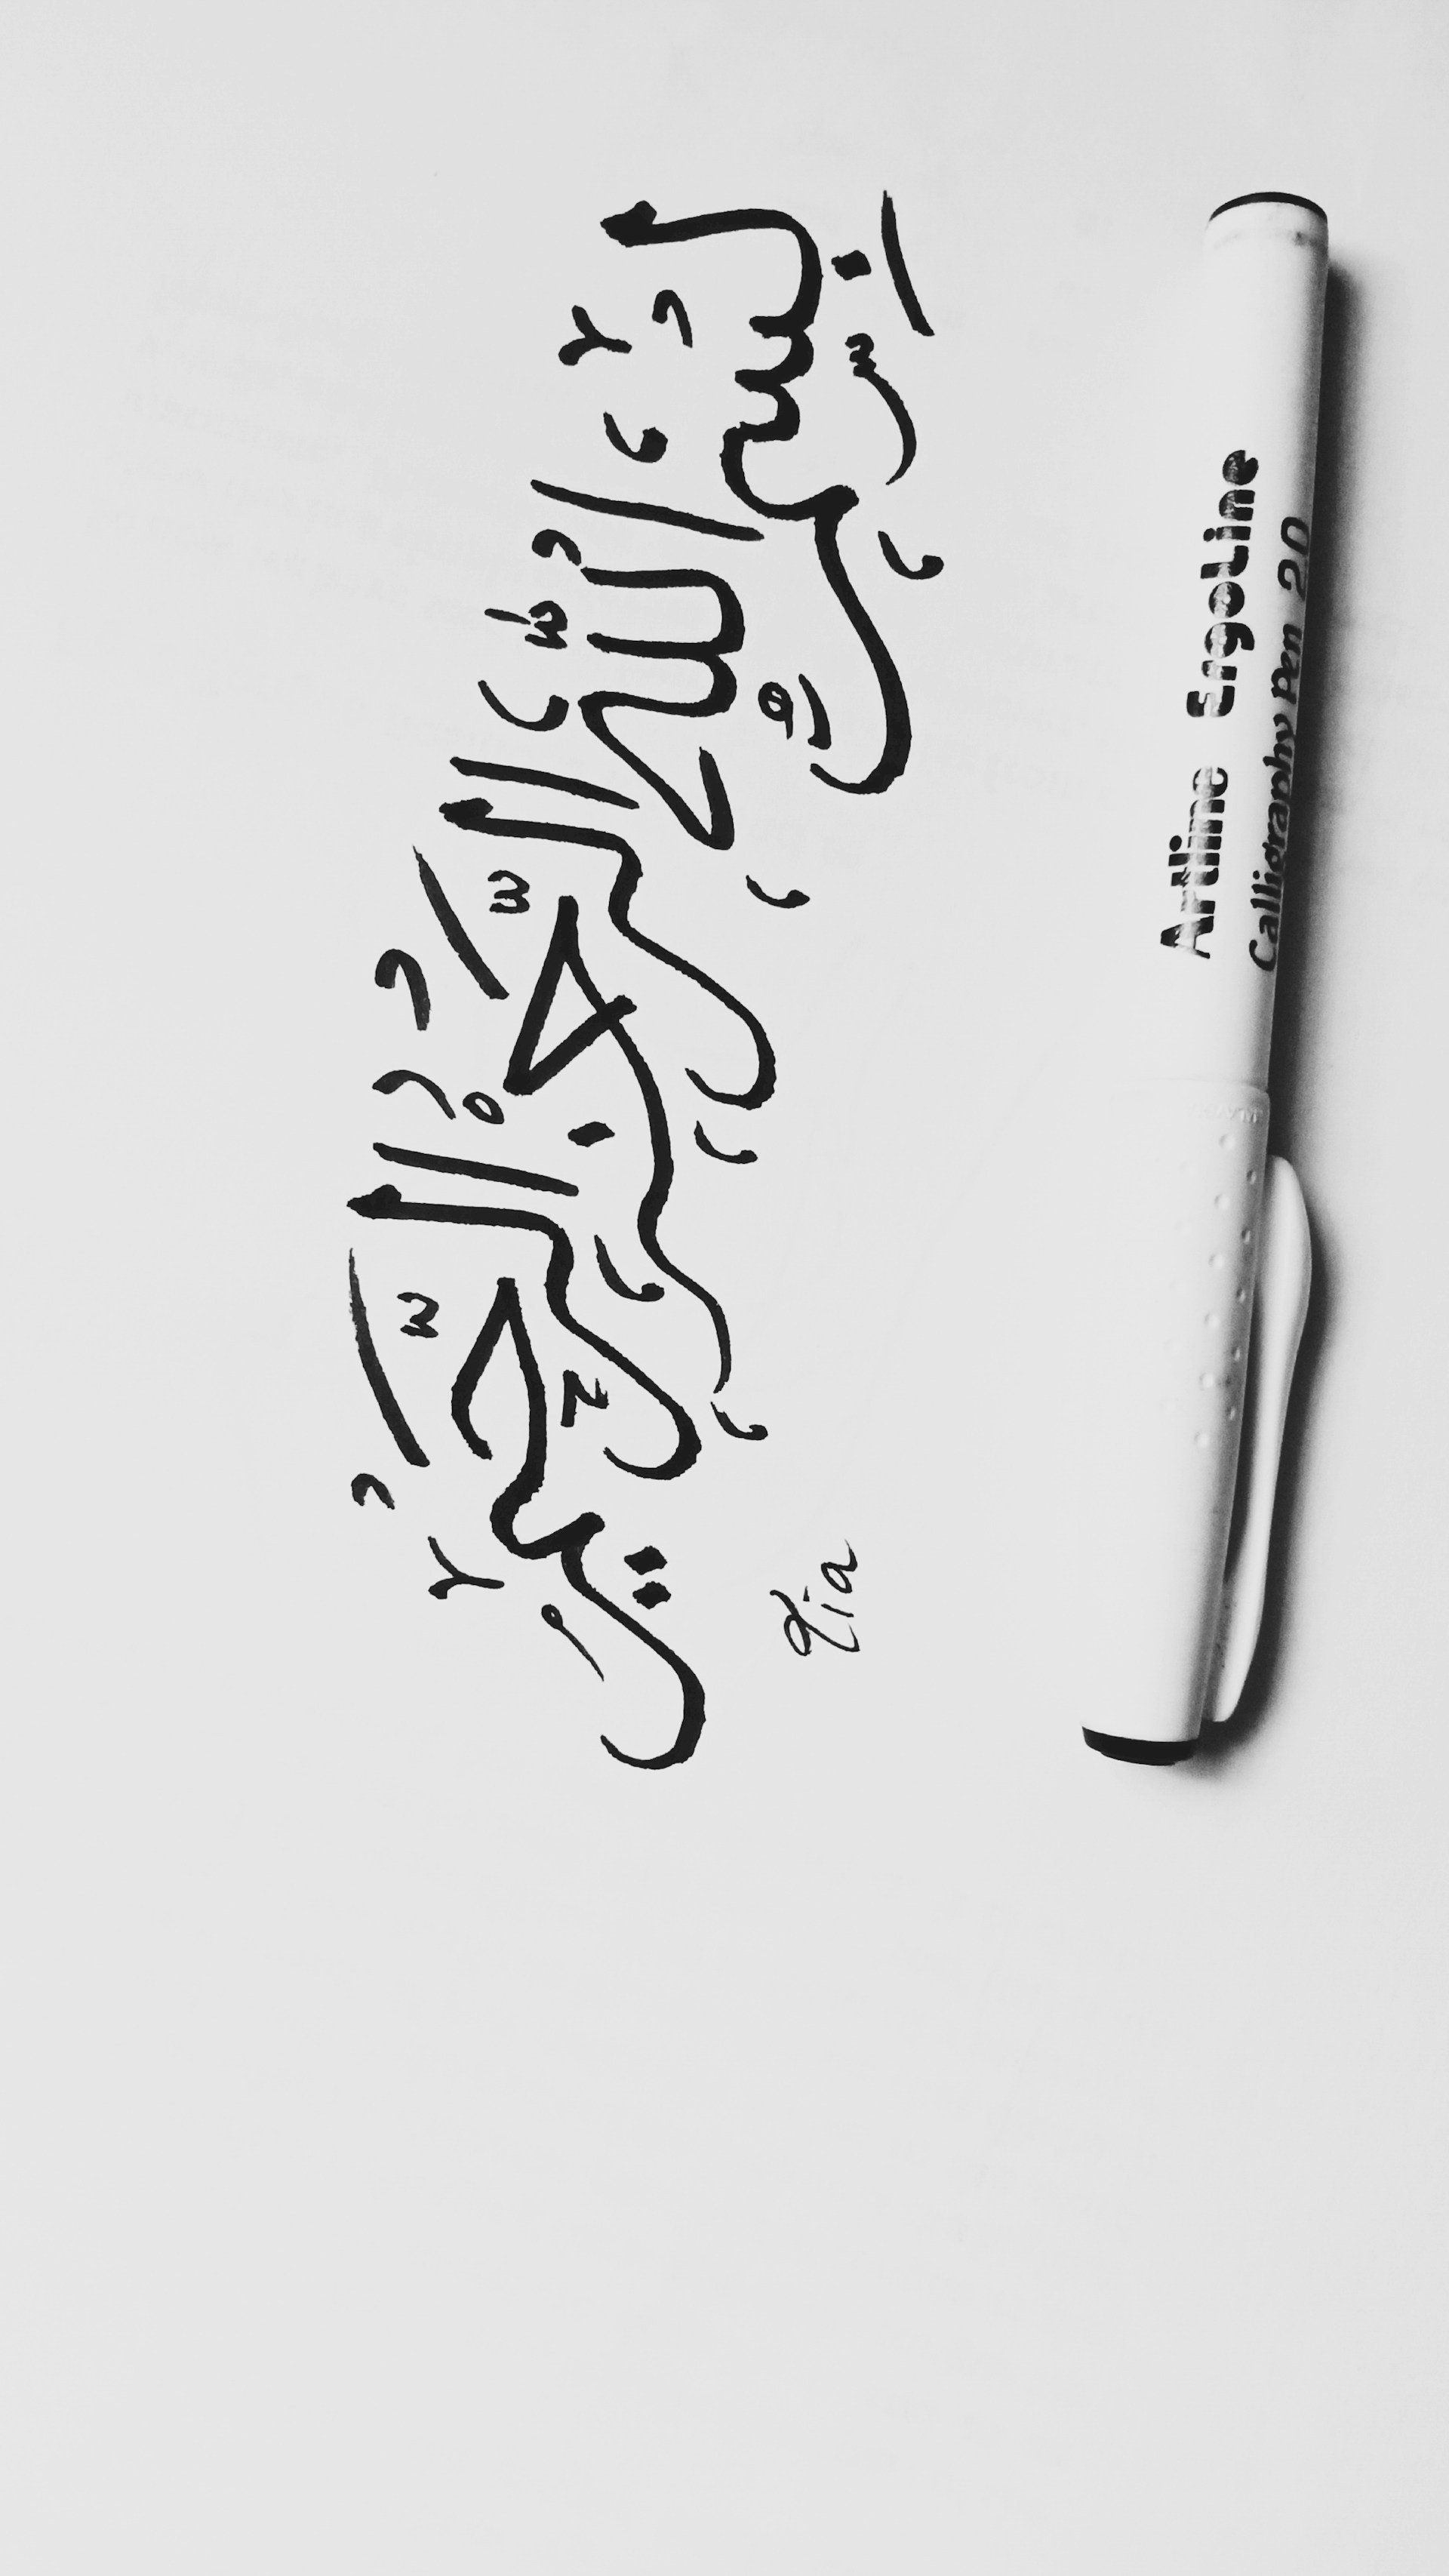 بسم الله الرحمن الرحيم
Zia
Artline ErgoLine
Calligraphy Pen 2.0